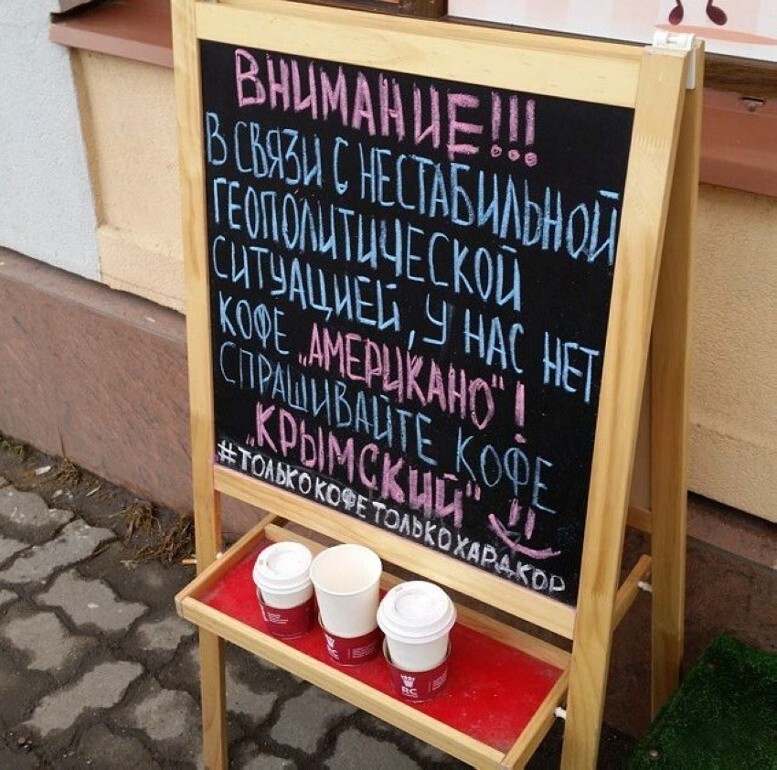 ВНИМАНИЕ!!!
В СВЯЗИ С НЕСТАБИЛЬНОЙ
ГЕОПОЛИТИЧЕСКОЙ
СИТУАЦИЕЙ, У НАС НЕТ
КОФЕ „АМЕРИКАНО"!
СПРАШИВАЙТЕ КОФЕ
„КРЫМСКИЙ"
#ТОЛЬКОКОФЕТОЛЬКОХАРДКОР
RC